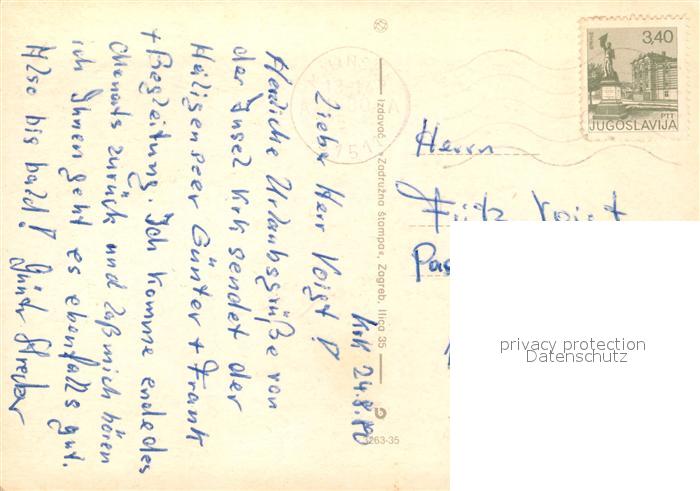 Krk 24.8.80
Lieber Herr Voigt!
Herzliche Urlaubsgrüße von
der Insel Krk sendet der
Heiligenseer Günter + Frank
+ Begleitung. Ich komme ende des
Monats zurück und laß mich hören
ich Ihnen geht es ebenfalls gut.
Also bis bald! Günter
Izdavač: »Zadružna štampa«, Zagreb, Ilica 35
3263-35
3,40
PTT
JUGOSLAVIJA
Herrn
Fritz Voigt
privacy protection
Datenschutz